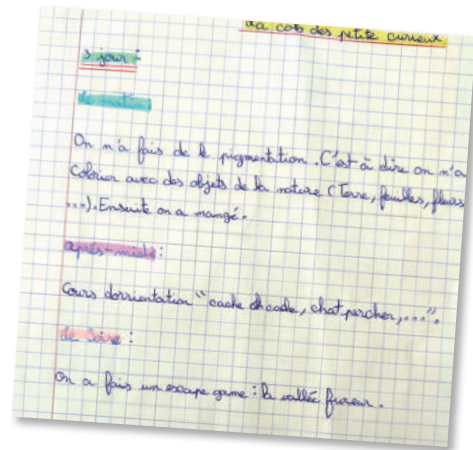 La cob des petite curieux
3 jour :
Le matin
On n'a fais de le pigmentation. C'est à dire on n'a
Colorier avec des objets de la nature (Terre, feuilles, fleurs
...). Ensuite on a mangé.
après-midi :
Cours dorrientation "cache chcache, chat percher, ...".
Le Soire :
On a fais un escape game : la vallée fureur.